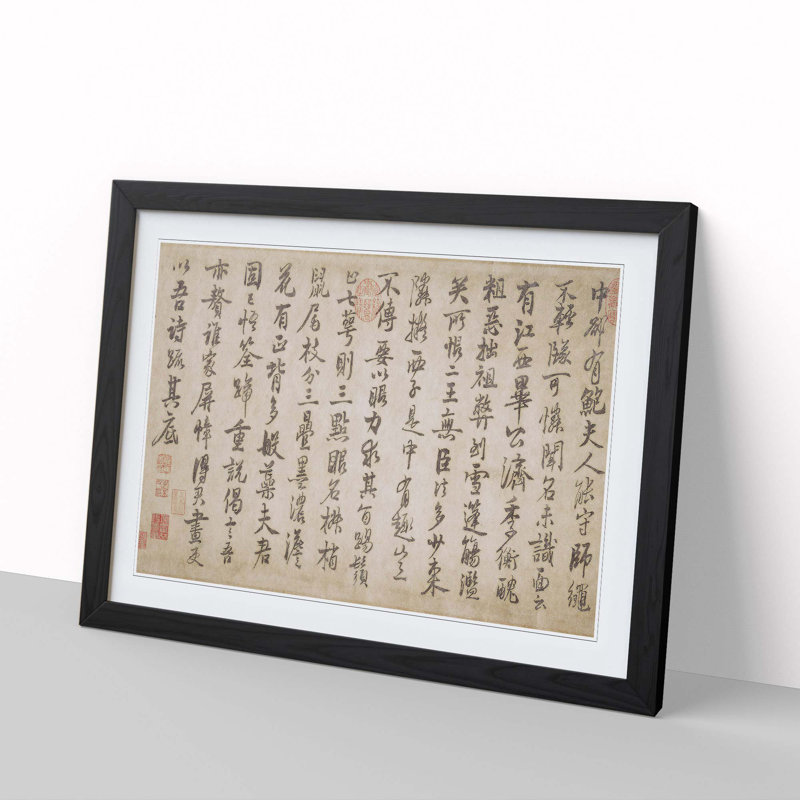 中却有鮑夫人能守師繩
不輕墜可憐聞名未識面云
有江西畢公濟季衡醜
粗惡拙祖弊到雪蓬觴濫
矣所恨二王無臣法多少東
隣擬西子是中有趣豈
不傳要以眼力求其旨踢鬚
止七萼則三點眼名椒梢
鼠尾枝分三疊墨濃澹
花有正背多般蘂夫君
固已悟筌蹄重說偈言吾
亦贅誰家屏幛得君畫更
以吾詩疏其底